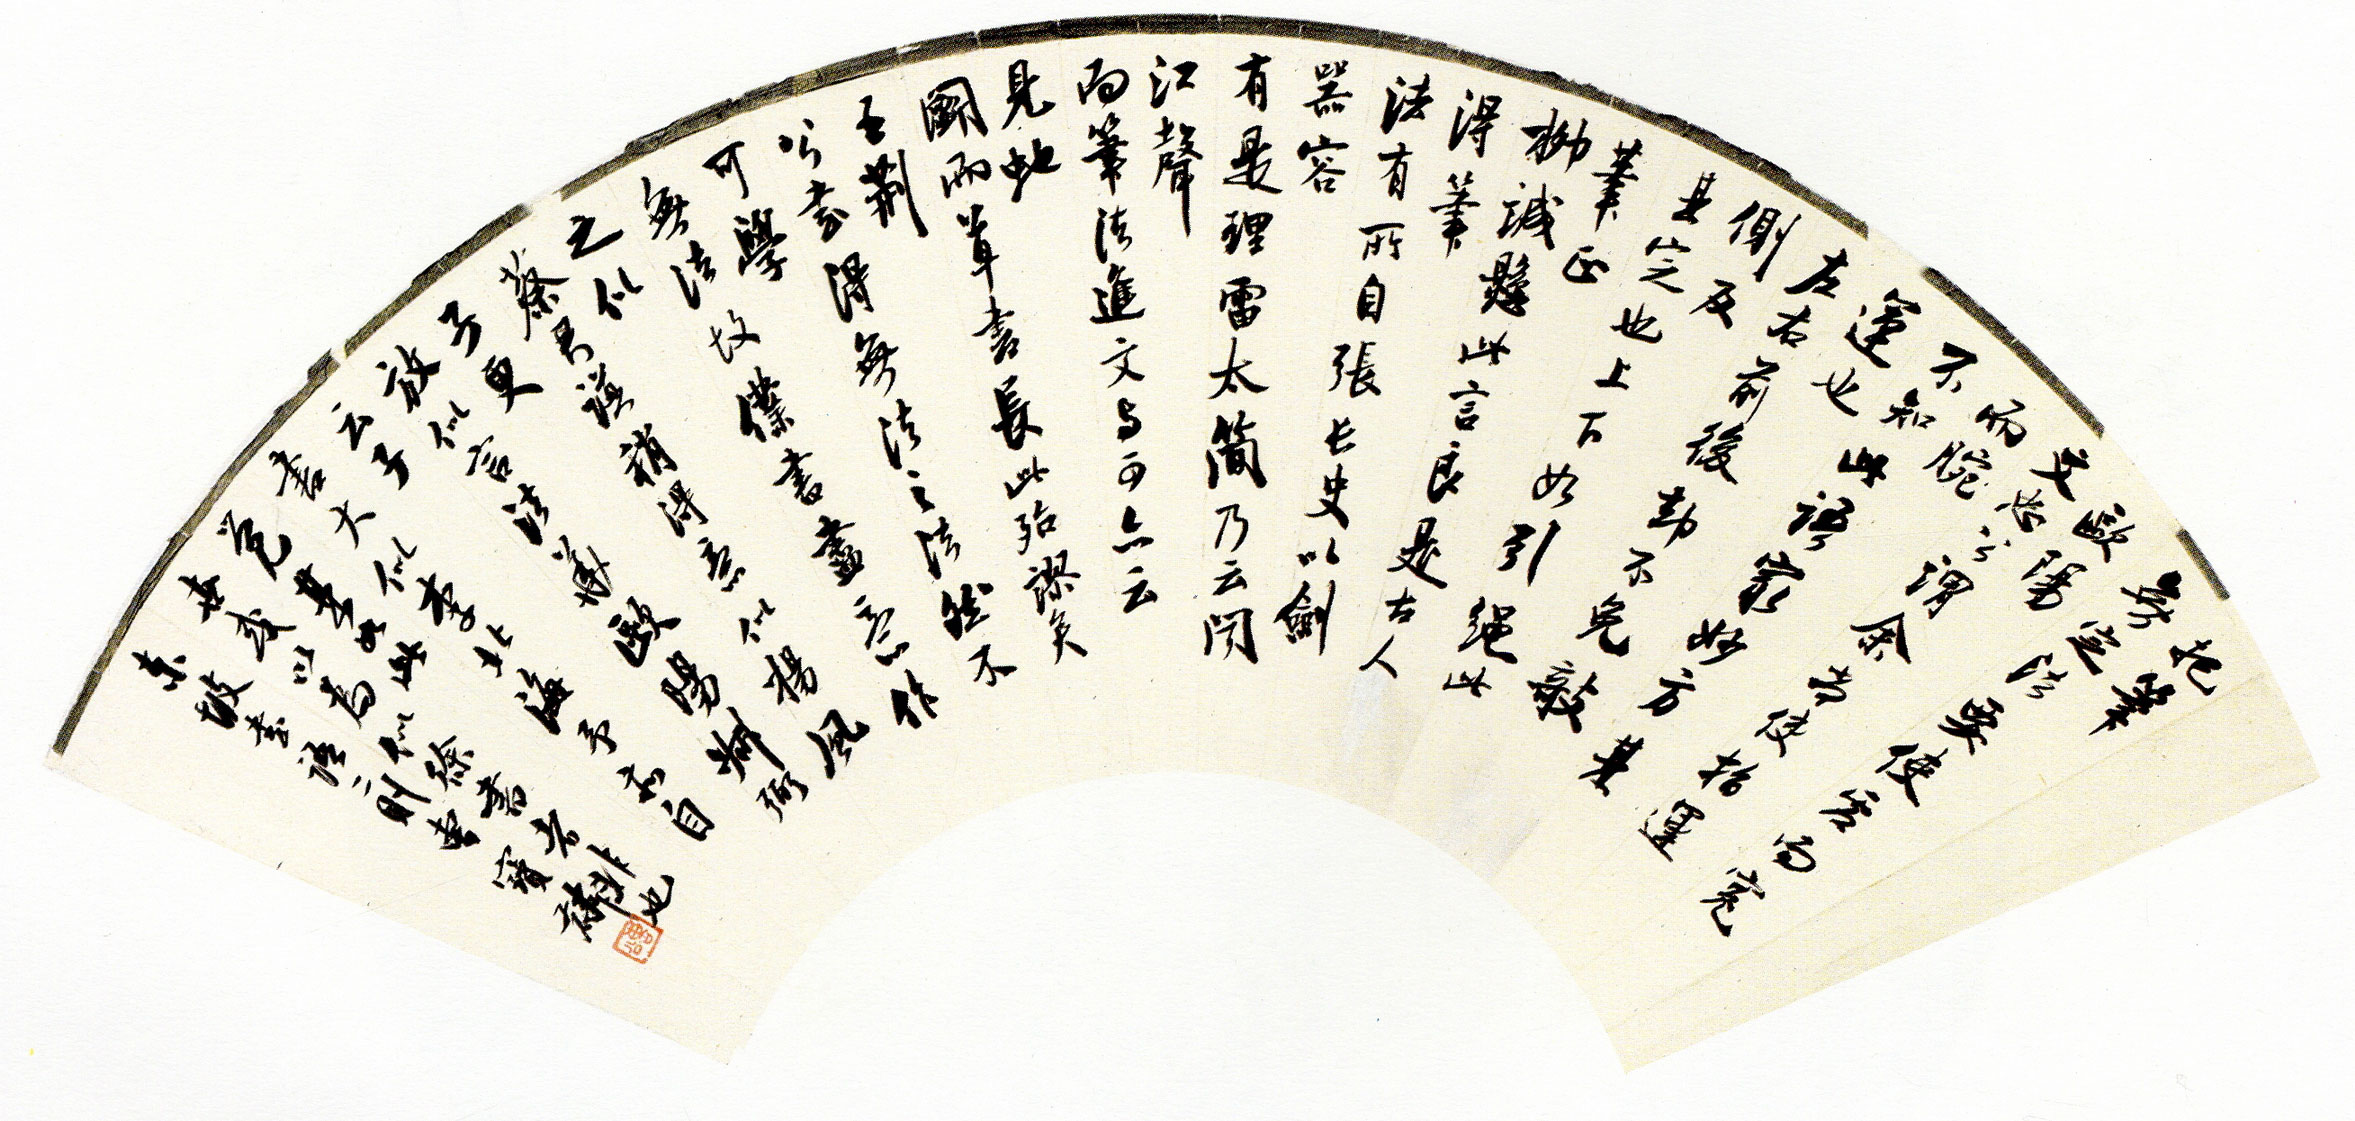 把筆
無定法要使虛而寬
歐陽
文忠公謂余當使指運
而腕
不知此語最妙方其
運也
左右前後却不免欹
側及
其定也上下如引繩此
筆正
柳誠懸此言良是古人
得筆
法有所自張長史以劍
器容
有是理雷太簡乃云聞
江聲
而筆法進文与可亦云
見蛇
鬭而草書長此殆謬矣
王荊
公書得無法之法然不
可學
無法故僕書盡意作
之似
蔡君謨稍得意似楊風
子更
放似言法華歐陽叔弼
云子
書大似李北海予亦自
覺其如此
世或以為似徐書者非也
東坡書語二則